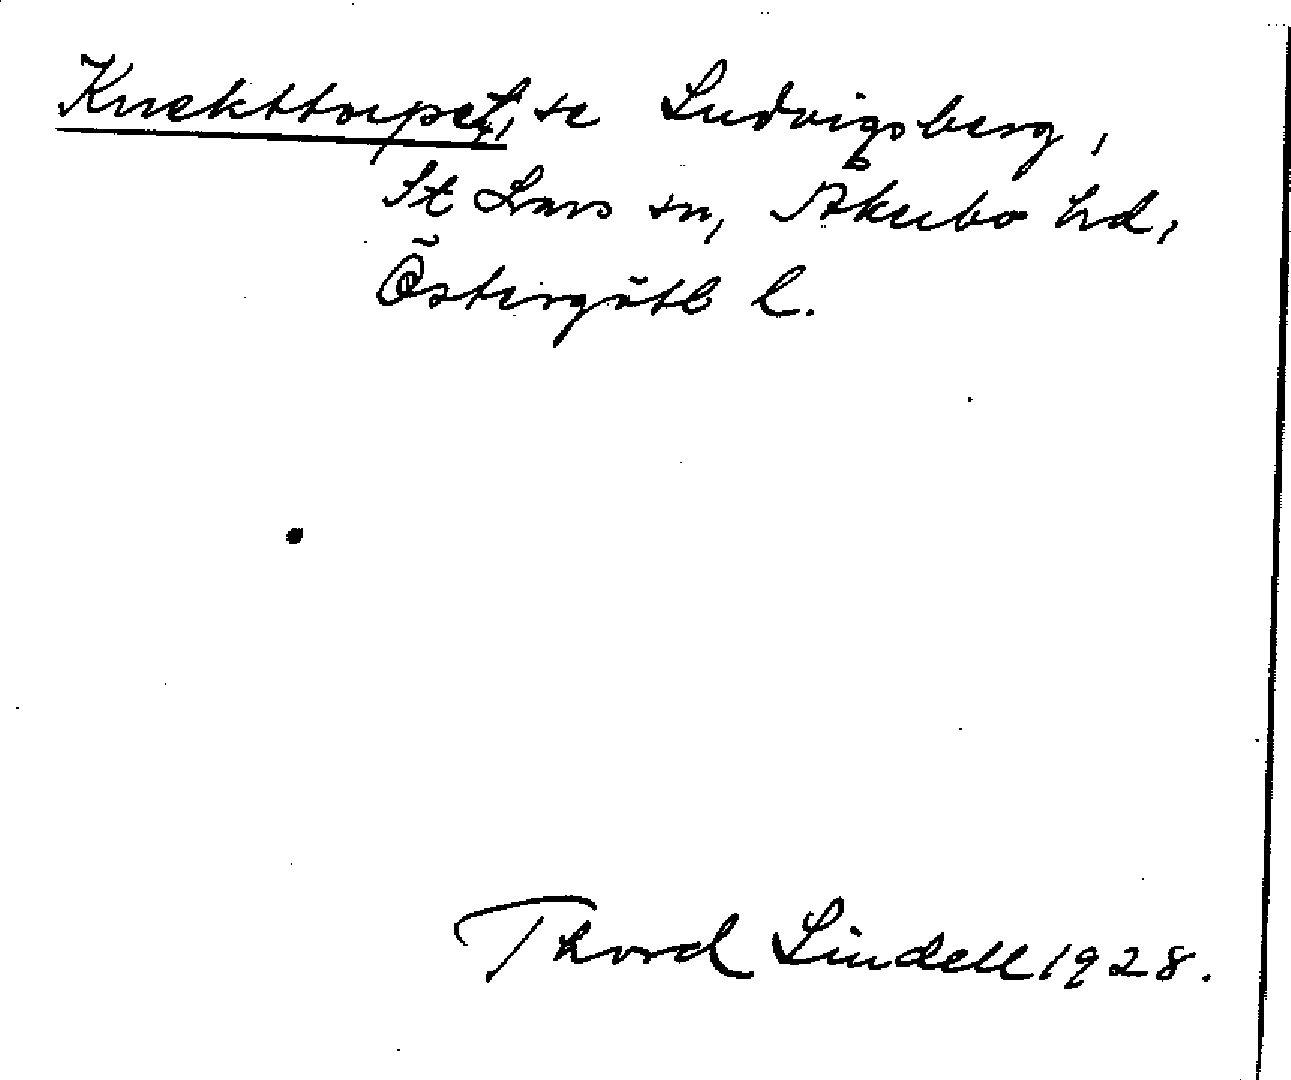 Knekttorpet, se Ludvigsberg,
St Lars sn, Akerbo hd,
Östergötl l.
Thord Lindell 1928.